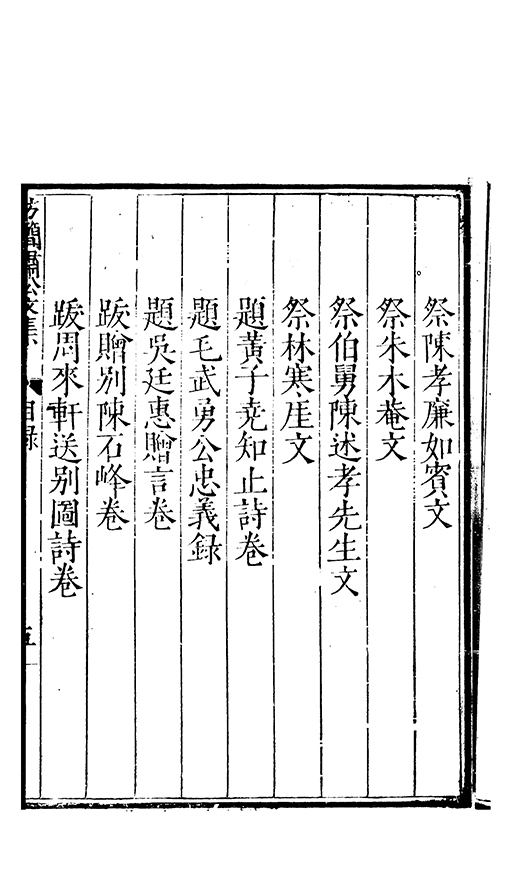 祭陳孝廉如賓文
祭朱木菴文
祭伯舅陳述孝先生文
祭林寒厓文
題黃子堯知止詩卷
題毛武勇公忠義録
題吳廷惠贈言卷
跋贈别陳石峰卷
跋周來軒送别圖詩卷
簡肅公文集
目録
五